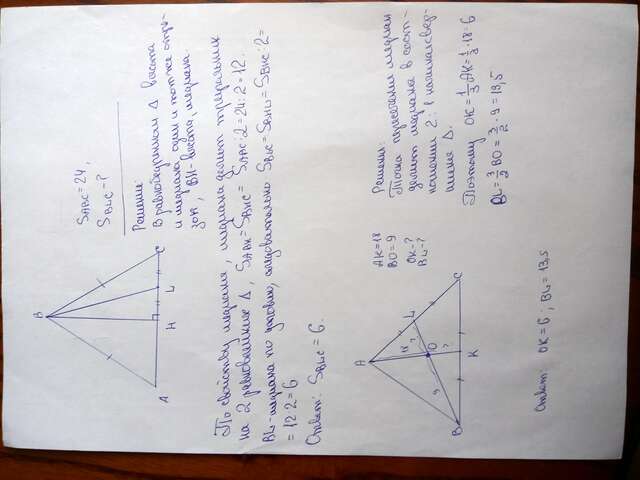 B
A
H
L
C
S_ABC = 24,
S_BLC - ?
Решение:
В равнобедренном Δ высота
и медиана один и тот же отре-
зок, BH - высота, медиана.
По свойству медианы, медиана делит треугольник
на 2 равновеликие Δ, S_ABH = S_BHC = S_ABC : 2 = 24 : 2 = 12.
BL - медиана по условию, следовательно S_BLC = S_BHL = S_BHC : 2 =
= 12 : 2 = 6
Ответ: S_BLC = 6.
A
18
?
L
9
O
?
B
K
C
AK = 18
BO = 9
OK - ?
BL - ?
Решение:
Точка пересечения медиан
делит медианы в соот-
ношении 2 : 1 начиная с вер-
шины Δ.
Поэтому OK = 1/3 AK = 1/3 · 18 = 6
BL = 3/2 BO = 3/2 · 9 = 13,5
Ответ: OK = 6 ; BL = 13,5